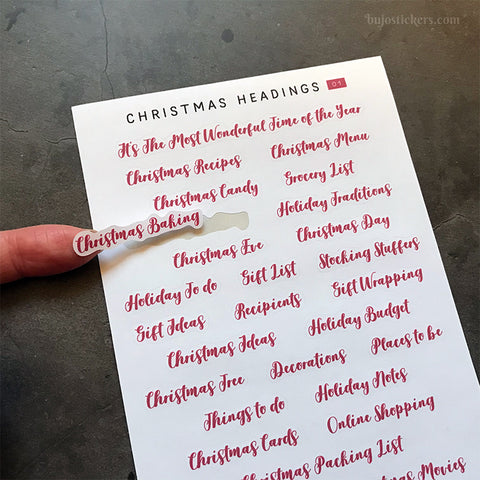 bujostickers.com
CHRISTMAS HEADINGS 01
It's The Most Wonderful Time of the Year
Christmas Recipes
Christmas Menu
Christmas Candy
Grocery List
Christmas Baking
Holiday Traditions
Christmas Eve
Christmas Day
Holiday To do
Gift List
Stocking Stuffers
Gift Ideas
Recipients
Gift Wrapping
Christmas Ideas
Holiday Budget
Christmas Tree
Decorations
Places to be
Things to do
Holiday Notes
Christmas Cards
Online Shopping
Christmas Packing List
Movies